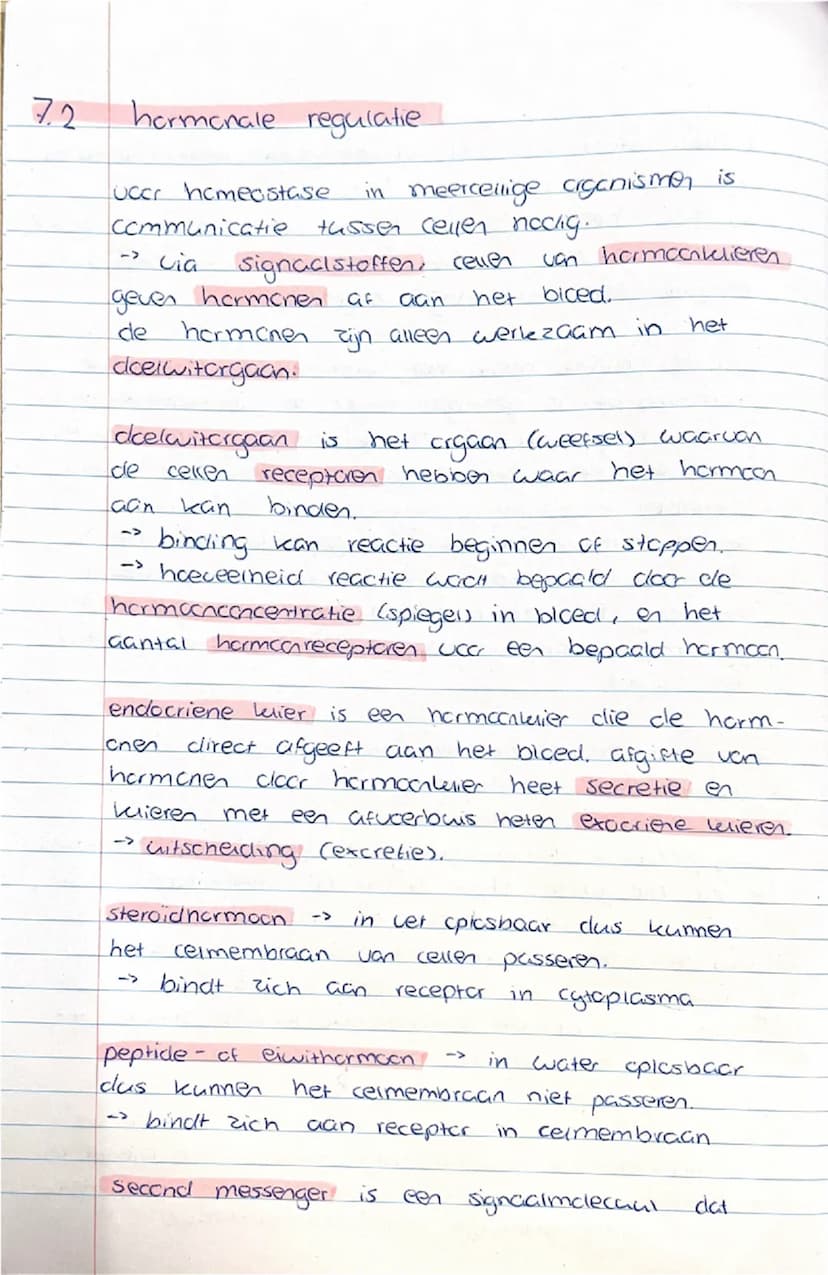 7.2 hormonale regulatie
voor homeostase in meercellige organismen is
communicatie tussen cellen nodig.
-> via signaalstoffen, cellen van hormoonklieren
geven hormonen af aan het bloed.
de hormonen zijn alleen werkzaam in het
doelwitorgaan.
doelwitorgaan is het orgaan (weefsel) waarvan
de cellen receptoren hebben waar het hormoon
aan kan binden.
-> binding kan reactie beginnen of stoppen.
-> hoeveelheid reactie wordt bepaald door de
hormoonconcentratie (spiegel) in bloed, en het
aantal hormoonreceptoren voor een bepaald hormoon.
endocriene klier is een hormoonklier die de horm-
onen direct afgeeft aan het bloed. afgifte van
hormonen door hormoonklier heet secretie en
klieren met een afvoerbuis heten exocriene klieren.
-> uitscheiding (excretie).
steroïdhormoon -> in vet oplosbaar dus kunnen
het celmembraan van cellen passeren.
-> bindt zich aan receptor in cytoplasma
peptide- of eiwithormoon -> in water oplosbaar
dus kunnen het celmembraan niet passeren.
-> bindt zich aan receptor in celmembraan
second messenger is een signaalmolecuul dat